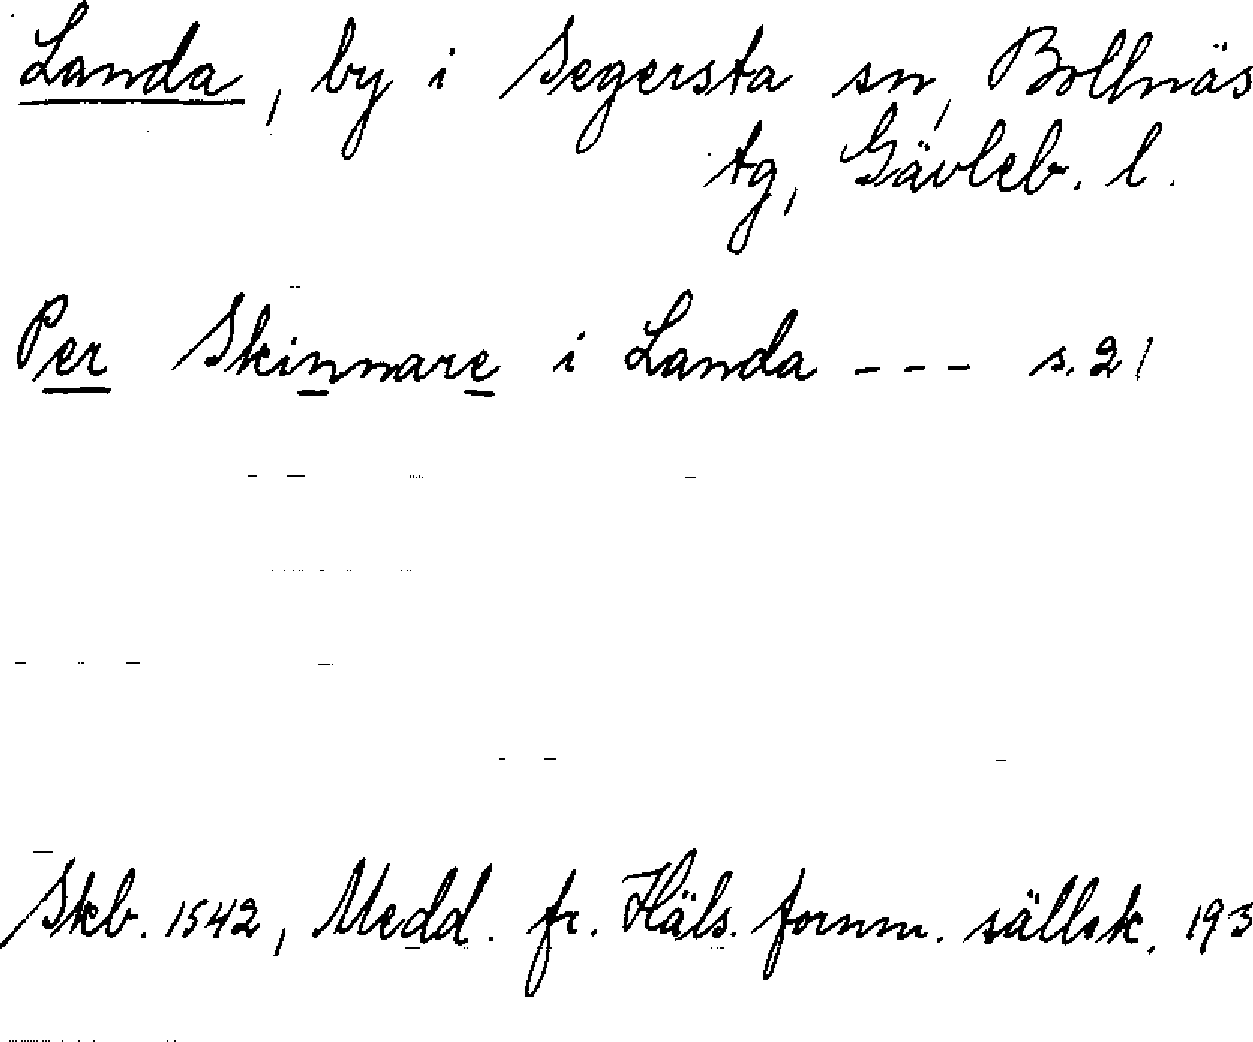 Landa, by i Segersta sn, Bollnäs
tg, Gävleb. l.
Per Skinnare i Landa --- s. 21
Skb. 1542, Medd. fr. Häls. fornm. sällsk. 193